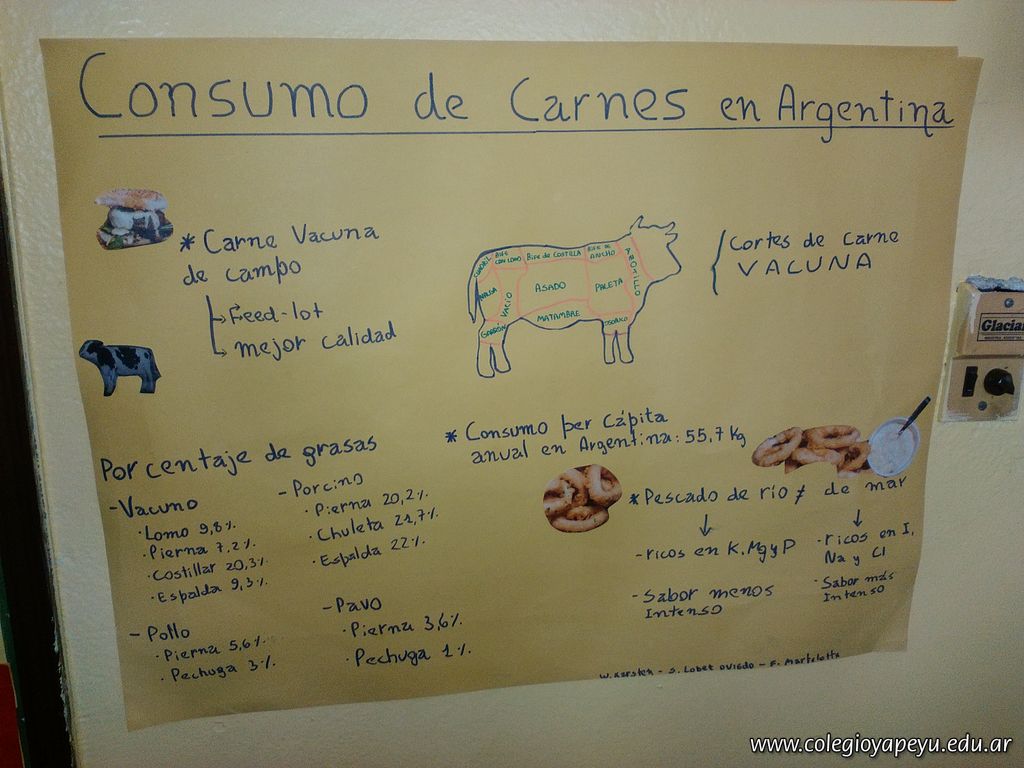 Consumo de Carnes en Argentina
* Carne Vacuna
de campo
Feed-lot
mejor calidad
CUADRIL
BIFE
CON LOMO
BIFE DE COSTILLA
BIFE DE
ANCHO
NALGA
VACIO
ASADO
PALETA
MATAMBRE
GARRÓN
Cortes de carne
VACUNA
* Consumo per Cápita
anual en Argentina: 55,7 Kg
Porcentaje de grasas
- Vacuno
· Lomo 9,8%.
· Pierna 7,2%.
· Costillar 20,3%.
· Espalda 9,3%.
- Porcino
· Pierna 20,2%.
· Chuleta 21,7%.
· Espalda 22%.
- Pollo
· Pierna 5,6%.
· Pechuga 3%.
- Pavo
· Pierna 3,6%.
· Pechuga 1%.
* Pescado de río ≠ de mar
- ricos en K, Mg y P
- Sabor menos
Intenso
· ricos en I,
Na y Cl
· Sabor más
Intenso
W. Karsten - S. Lobet Oviedo - F. Martelotta
Glaciar
www.colegioyapeyu.edu.ar